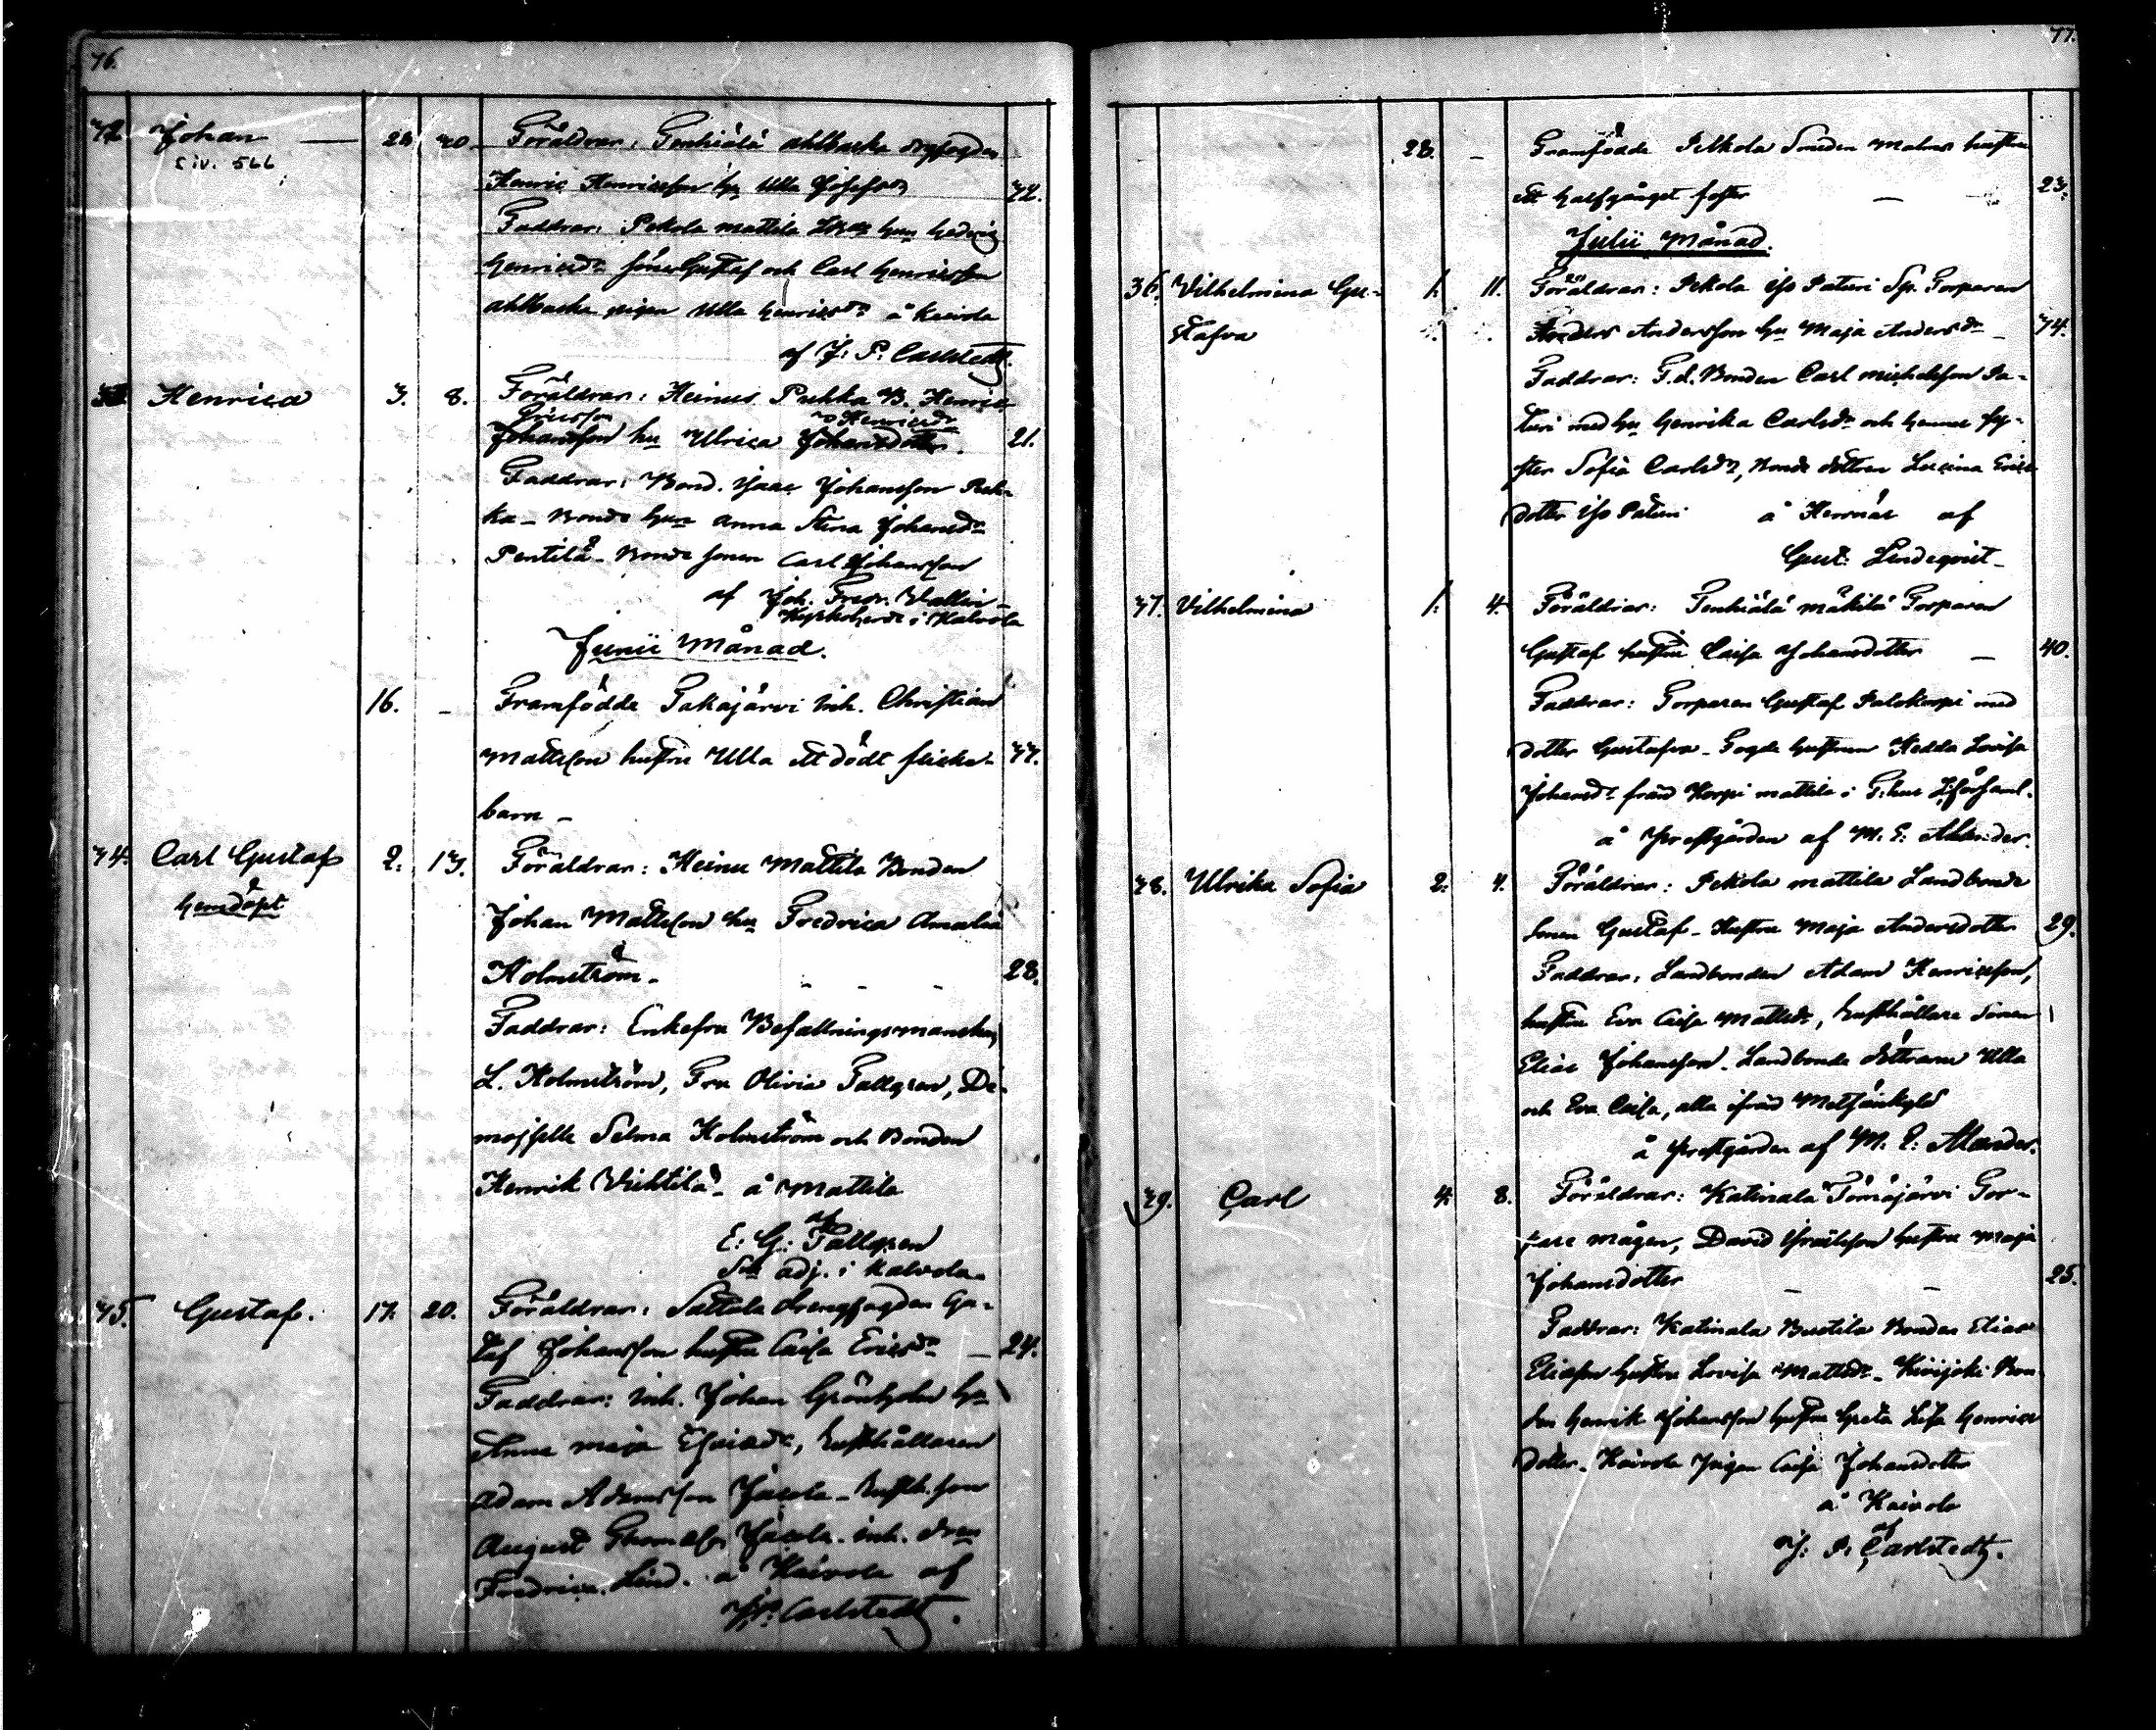 76.
Johan — 28 30 Föräldrar: ahlbacka
Siv. 566
Henric Henricsson hu Ulla 32.
Faddrar: Pekola mattila hu Hedvig
Henricsdr Gustaf och Carl Henricsson
ahlbacka pigan Ulla Henricsdr å Kaivola
af J: P: Carlstedt.
Henrica 3. 8. Föräldrar: Heinus Pukka B. Henric
Ericsson Henricsdr
Johansson hu Ulrica Johansdotter. 21.
Faddrar: Bond. Isaac Johansson Puk-
ka – Bonde hun Anna Stina Johansdr
Pentilä – Bonde sonen Carl Johansson
af Joh. Fredr. Wallin –
Kyrkoherde i Kalvola
Junii Månad.
16. – Framfödde Takajärvi inh. Christian
Mattsson hustru Ulla ett dödt flicke- 37.
barn –
34. Carl Gustaf 2. 13. Föräldrar: Heinu Mattila Bonden
hemdöpt
Johan Mattsson hu Fredrica Amalia
Holmström – 28.
Faddrar: Enkefru Befallningsmanskan
L. Holmström, Fru Olivia Tallgren, De-
mojselle Selma Holmström och Bonden
Henrik Vichtilä – å Mattila
af
E: G: Tallgren
adj. i Kalvola
35. Gustaf. 17. 20. Föräldrar: Sattala drengfogden Gu-
staf Johansson hustru Caisa Ericsdr — 24.
Faddrar: inh. Johan Grönholm hu
Anna Maja Esaiadr, Rusthållaren
Adam Adamsson Jacola – Rusth. son
August Jacola. inh.
Fredrica Lind. å Kaivola af
J: P: Carlstedt.
77.
28. – Framfödde Pekola Smeden Malms hustru
ett halfgånget foster — 23.
Julii Månad.
36. Vilhelmina Gu- 1. 11. Föräldrar: Pekola iso Paturi Torparen
stafva Anders Andersson hu Maja Andersdr – 34.
Faddrar: F.d. Bonden Carl Michelsson Pa-
turi med hu Henrika Carlsdr och hennes sy-
ster Sofia Carlsdr, Bonde dottren Lovina Erics
dotter iso Paturi å af
Gust. Lindeqvist –
37. Vilhelmina 1. 4. Föräldrar: Mäkilä Torparen
Gustaf hustru Caisa Johansdotter — 40.
Faddrar: Torparen Gustaf Palokorpi med
dotter Gustafva – Fogde hustrun Hedda Lovisa
Johansdr från Korpi mattila i
å Prestgården af M. E: Alander.
38. Ulrika Sofia 2. 4. Föräldrar: Pekola mattila Landbonde
Sonen Gustaf – Hustru Maja Andersdotter 29.
Faddrar: Landbonden Adam Henricsson,
hustru Eva Caisa Mattsdr, Rusthållare Sonen
Elias Johansson. Landbonde döttrarne Ulla
och Eva Caisa, alla ifrån Metsänkylä
å Prestgården af M. E: Alander.
39. Carl 4. 8. Föräldrar: Katinala Tömäjärvi Tor-
pare mågen, David Israelsson hustru Maja
Johansdotter — 25.
Faddrar: Katinala Bustila Bonden Elias
Eliasson hustru Lovisa Mattsdr – Kivijoki Bon-
den Henrik Johansson hustru Greta Lisa Henrics
dotter. Kaivola Pigan Caisa Johansdotter
å Kaivola
af
J: P: Carlstedt.